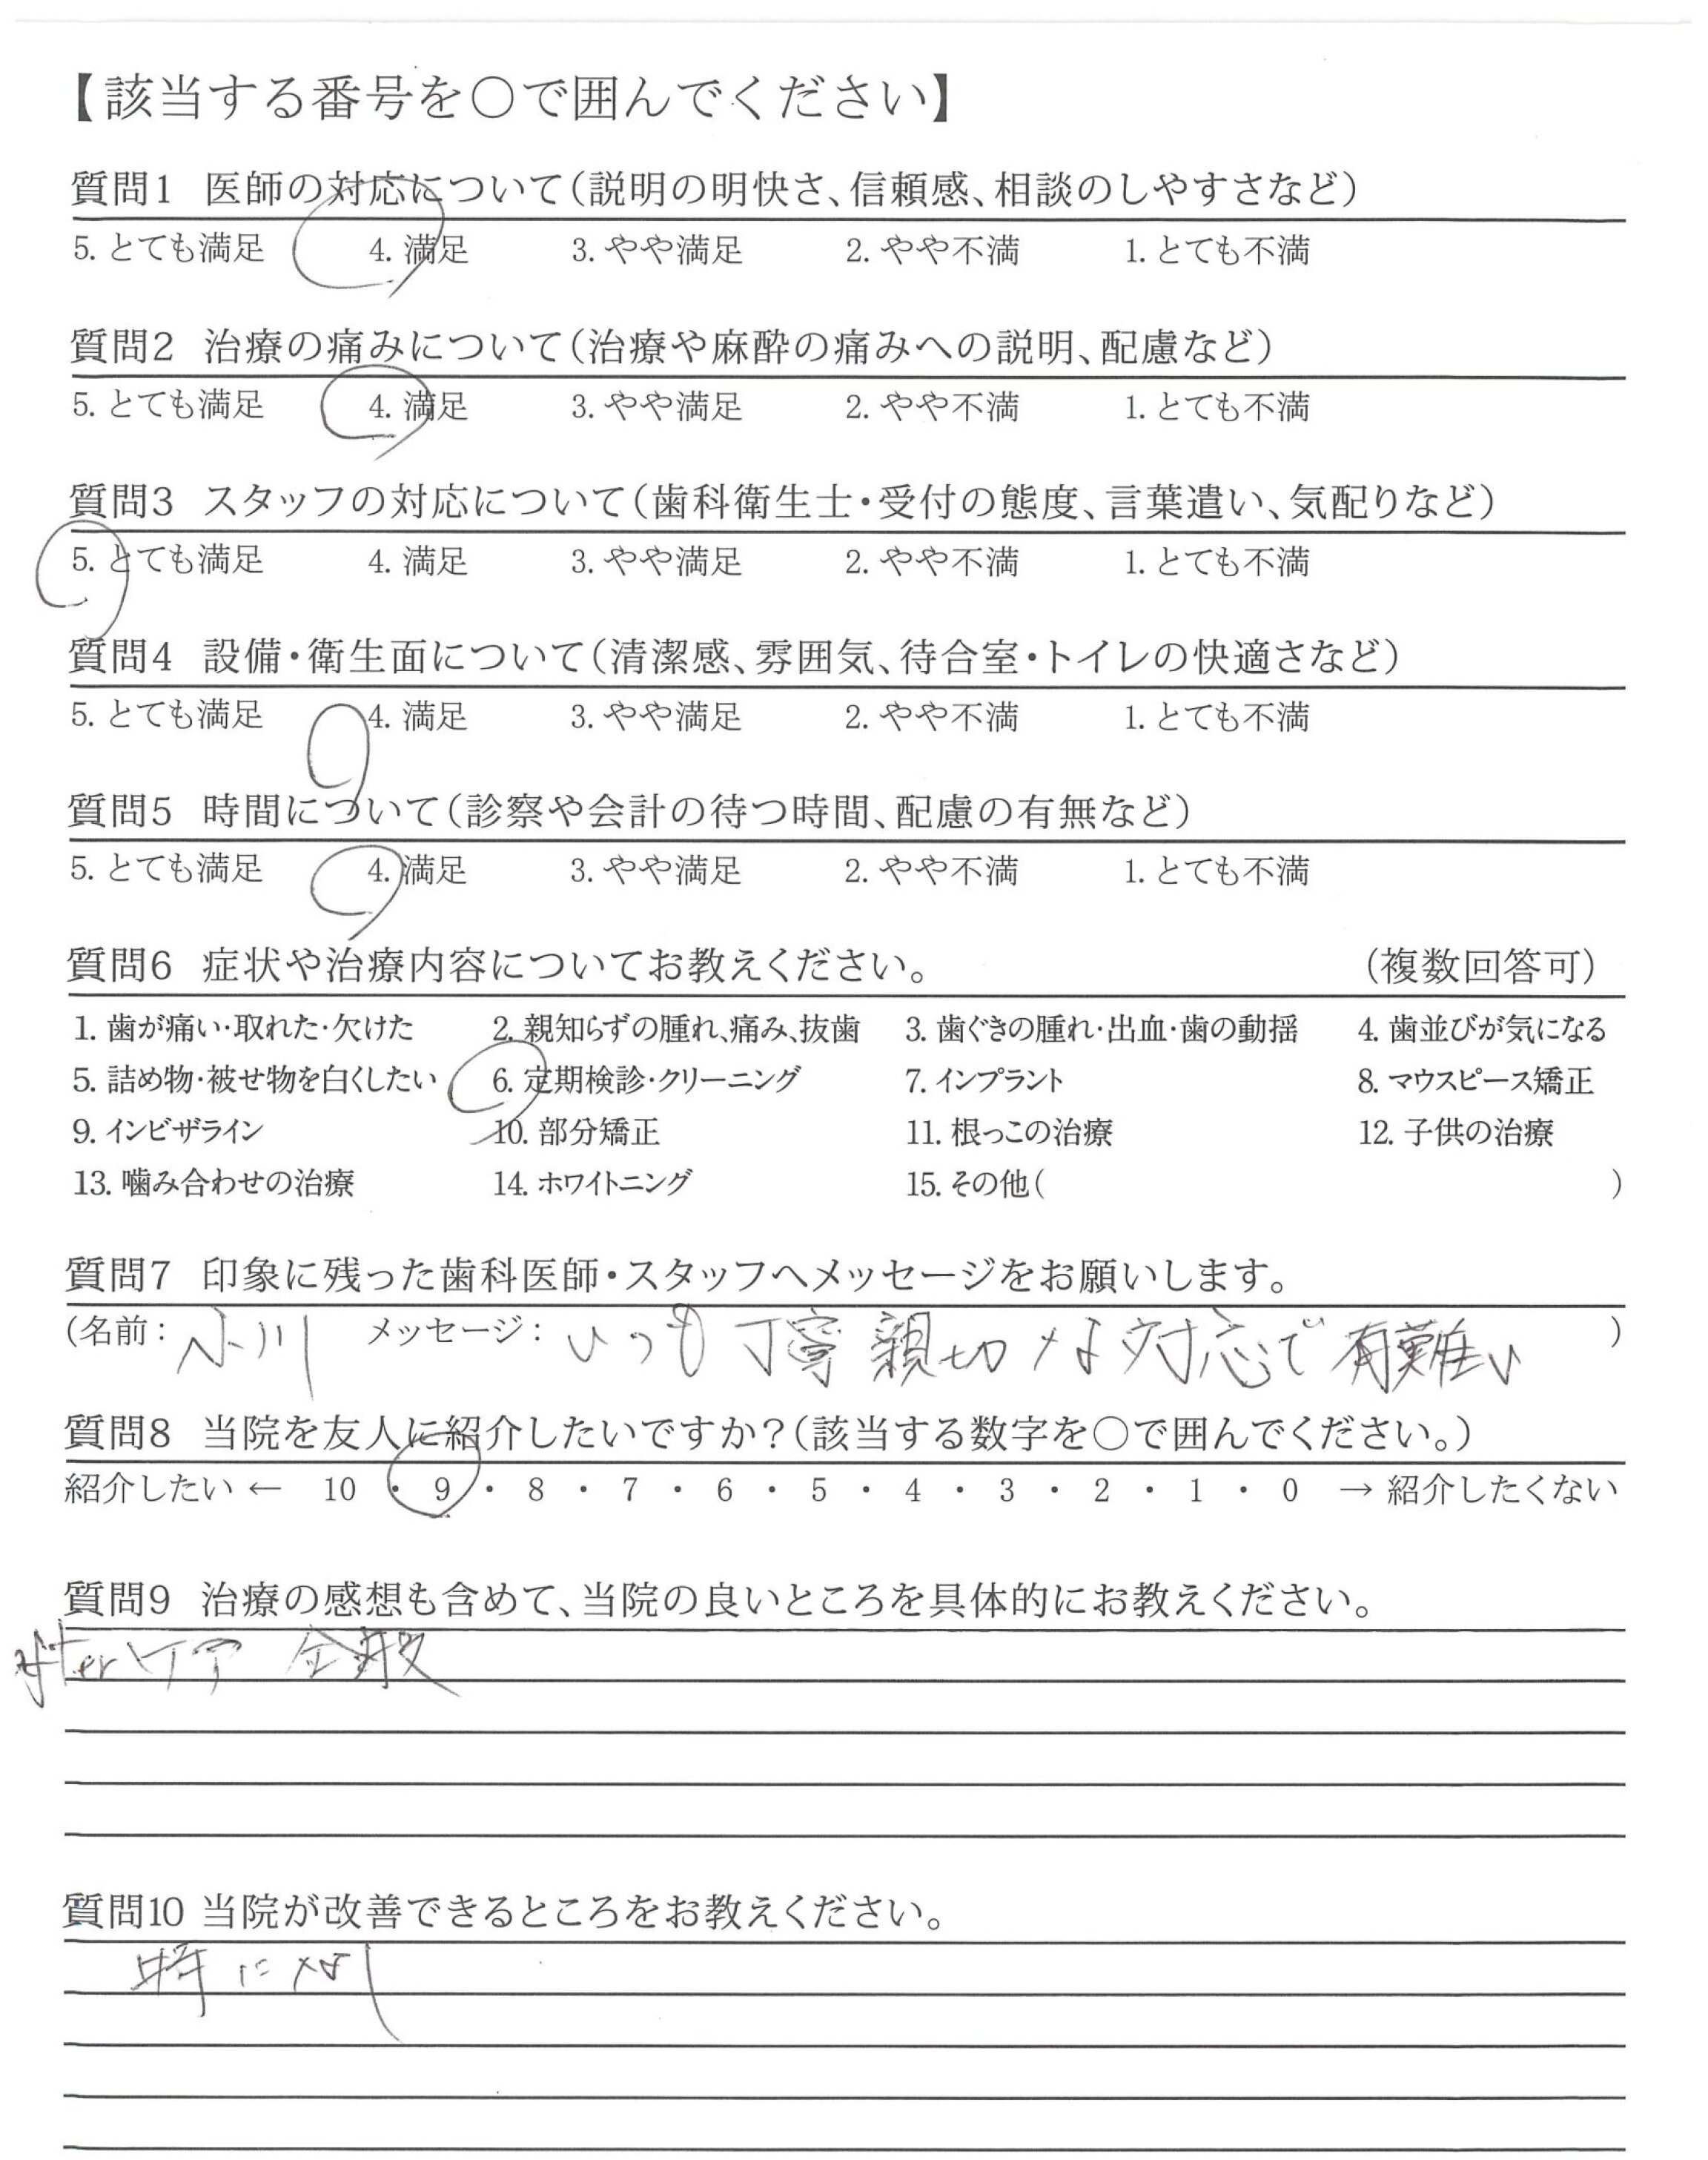 【該当する番号を○で囲んでください】
質問1 医師の対応について(説明の明快さ、信頼感、相談のしやすさなど)
5. とても満足 4. 満足 3. やや満足 2. やや不満 1. とても不満
質問2 治療の痛みについて(治療や麻酔の痛みへの説明、配慮など)
5. とても満足 4. 満足 3. やや満足 2. やや不満 1. とても不満
質問3 スタッフの対応について(歯科衛生士・受付の態度、言葉遣い、気配りなど)
5. とても満足 4. 満足 3. やや満足 2. やや不満 1. とても不満
質問4 設備・衛生面について(清潔感、雰囲気、待合室・トイレの快適さなど)
5. とても満足 4. 満足 3. やや満足 2. やや不満 1. とても不満
質問5 時間について(診察や会計の待つ時間、配慮の有無など)
5. とても満足 4. 満足 3. やや満足 2. やや不満 1. とても不満
質問6 症状や治療内容についてお教えください。 (複数回答可)
1. 歯が痛い・取れた・欠けた 2. 親知らずの腫れ、痛み、抜歯 3. 歯ぐきの腫れ・出血・歯の動揺 4. 歯並びが気になる
5. 詰め物・被せ物を白くしたい 6. 定期検診・クリーニング 7. インプラント 8. マウスピース矯正
9. インビザライン 10. 部分矯正 11. 根っこの治療 12. 子供の治療
13. 噛み合わせの治療 14. ホワイトニング 15. その他( )
質問7 印象に残った歯科医師・スタッフへメッセージをお願いします。
(名前: 小川 メッセージ: いつも丁寧親切な対応で有難い )
質問8 当院を友人に紹介したいですか?(該当する数字を○で囲んでください。)
紹介したい ← 10 ・ 9 ・ 8 ・ 7 ・ 6 ・ 5 ・ 4 ・ 3 ・ 2 ・ 1 ・ 0 → 紹介したくない
質問9 治療の感想も含めて、当院の良いところを具体的にお教えください。
afterケア 全般
質問10 当院が改善できるところをお教えください。
特になし